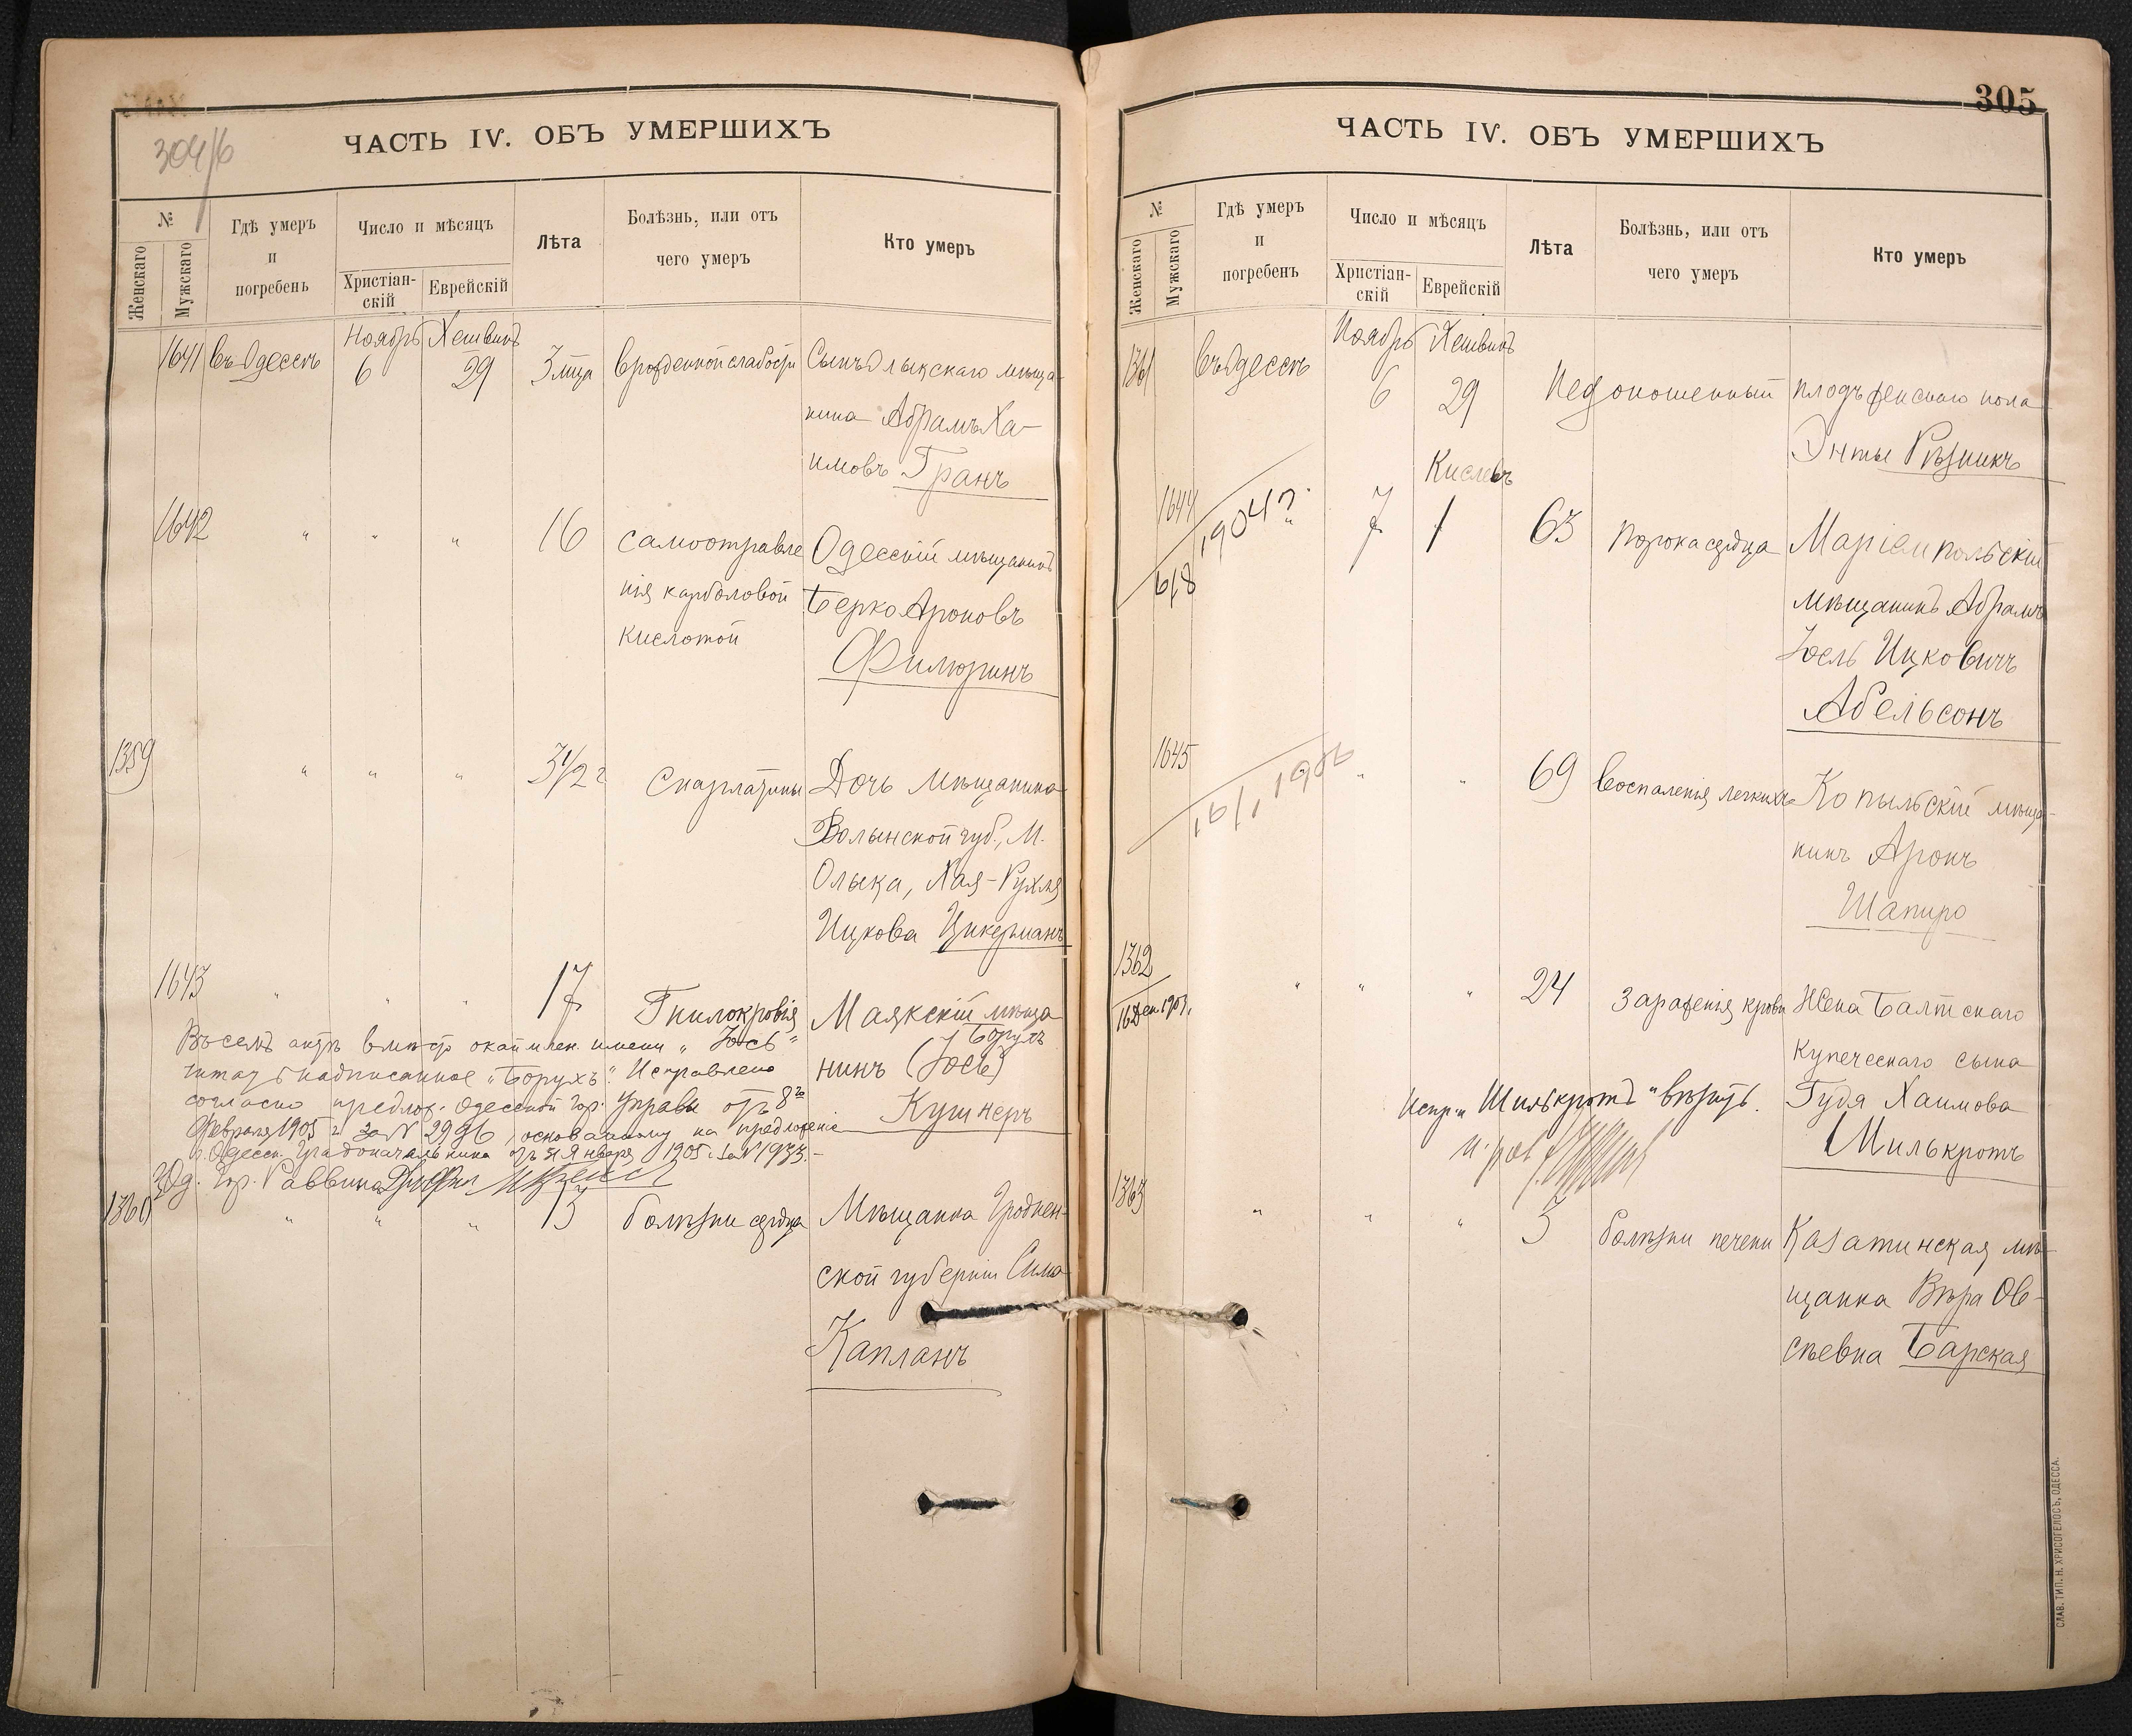 304/б
ЧАСТЬ IV. ОБЪ УМЕРШИХЪ
№
Женскаго
Мужскаго
Гдѣ умеръ
и
погребенъ
Число и мѣсяцъ
Христіан-
скій
Еврейскій
Лѣта
Болѣзнь, или отъ
чего умеръ
Кто умеръ
Ноябрь Хешвинъ
1641 въ Одессѣ 6 29 3 мца врожденной слабости Сынъ Олыкскаго мѣща-
нина Абрамъ Ха-
имовъ Гранъ
1642 " " " 16 самоотравле Одесскій мѣщанинъ
нія карболовой Берко Ароновъ
кислотой
Филюринъ
1359 " " " 3 1/2 г Скарлатины Дочь мѣщанина
Волынской губ., М.
Олыка, Хая-Рухля
Ицкова Цикерманъ
1643 " " " 17 Гнилокровія Маякскій мѣща
Борухъ
нинъ (Іось)
Кушнеръ
Въ семъ актѣ вмѣсто окаймлен. имени "Іось"
читать надписанное "Борухъ". Исправлено
согласно предлож. Одесской Гор. Управы отъ 8го
Февраля 1905 г. за № 2996, основанному на предложеніе
г. Одесск. Градоначальника отъ 31 Января 1905 г. за № 1933.-
Од. Гор. Раввина
1360 " " " 13 болѣзни сердца Мѣщанка Гроднен-
ской губерніи Сима
Капланъ
305
ЧАСТЬ IV. ОБЪ УМЕРШИХЪ
№
Женскаго
Мужскаго
Гдѣ умеръ
и
погребенъ
Число и мѣсяцъ
Христіан-
скій
Еврейскій
Лѣта
Болѣзнь, или отъ
чего умеръ
Кто умеръ
Ноябрь Хешвинъ
1361 въ Одессѣ 6 29 Недоношенный плодъ женскаго пола
Энты Рѣзникъ
Кислевъ
1644 7 1 63 Порока сердца Маріампольскій
6/8 1904 г.
мѣщанинъ Абрамъ
Іосль Ицковичъ
Абельсонъ
1645 " " 69 Воспаленія легкихъ Копыльскій мѣща-
19/1 1906
нинъ Аронъ
Шапиро
1362 " " " 24 Зараженія крови Жена Балтскаго
16 Дек. 1903.
купеческаго сына
Гудя Хаимова
Испр-н Шилькротъ "вѣрить.
Шилькротъ
1363 " " " 3 болѣзни печени Казатинская мѣ-
щанка Вѣра Ов-
сѣевна Барская
СЛАВ. ТИП. Н. ХРИСОГЕЛОСЪ, ОДЕССА.